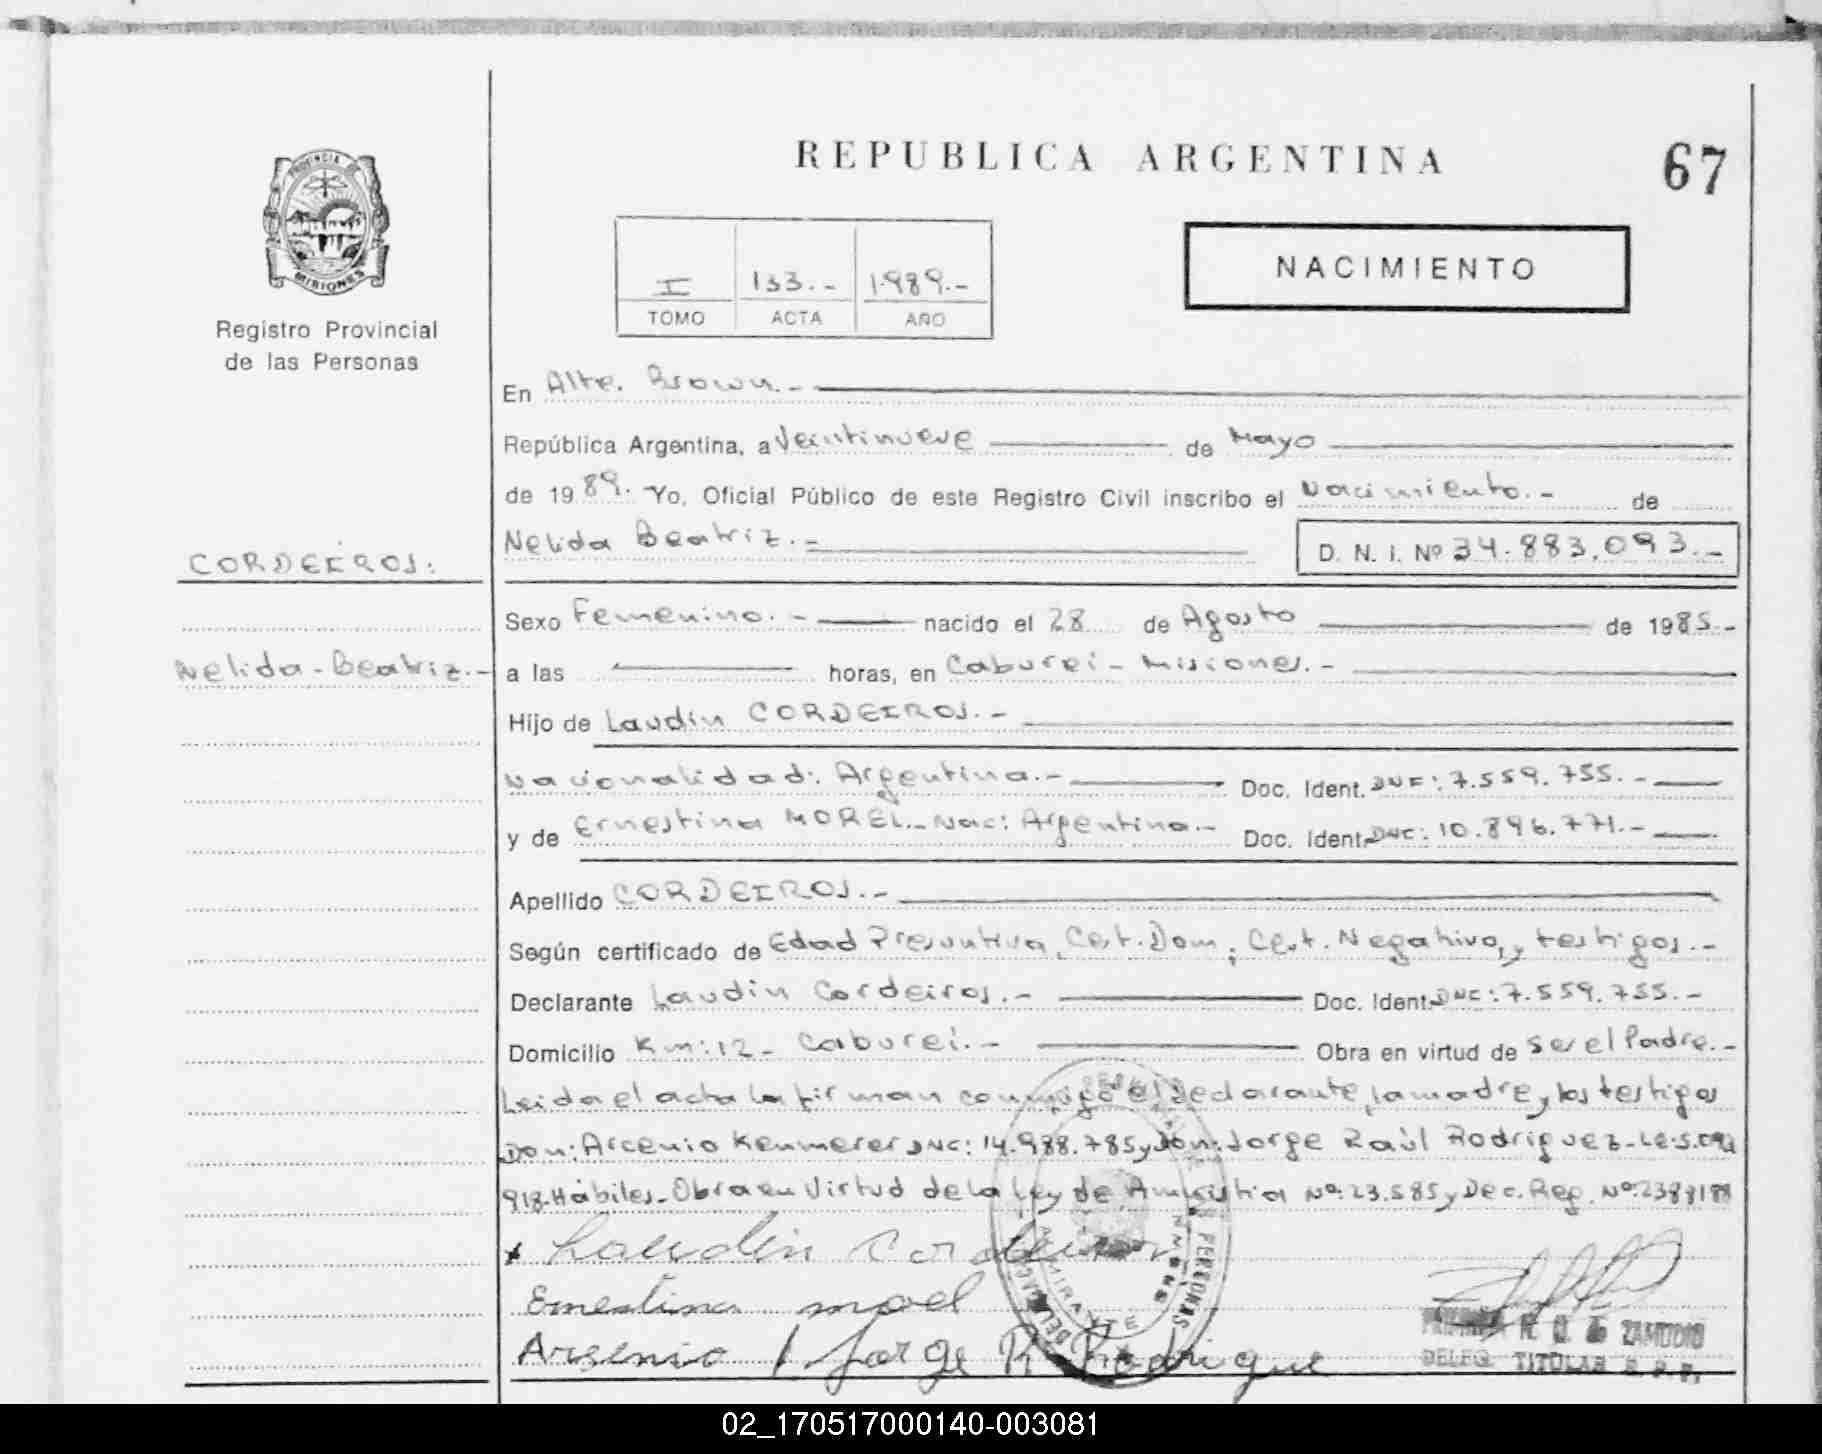 REPUBLICA ARGENTINA
67
PROVINCIA DE
MISIONES
Registro Provincial
de las Personas
I 133.- 1.989.-
TOMO ACTA AÑO
NACIMIENTO
En Alte. Brown.-
República Argentina, a Veintinueve de Mayo
de 1989. Yo, Oficial Público de este Registro Civil inscribo el Nacimiento.- de
Nelida Beatriz.- D. N. I. Nº 34.883.093.-
CORDEIROS:
Sexo Femenino.- nacido el 28 de Agosto de 1985.-
Nelida-Beatriz.-
a las horas, en Caburei - Misiones.-
Hijo de Laudin CORDEIROS.-
Nacionalidad: Argentina.- Doc. Ident. : 7.559.755.-
y de Ernestina MOREL.- Nac: Argentina.- Doc. Ident. : 10.896.771.-
Apellido CORDEIROS.-
Según certificado de Edad Presuntiva, Cert. Dom; Cert. Negativo, y testigos.-
Declarante Laudin Cordeiros.- Doc. Ident. : 7.559.755.-
Domicilio Km: 12 - Caburei.- Obra en virtud de ser el Padre.-
Leida el acta la firman conmigo el declarante, la madre y los testigos
Don: Arcenio Kenmerer : 14.988.785 y Don: Jorge Raúl Rodriguez - LE:
918. Hábiles.- Obra en Virtud de la Ley de Amnistia Nº: 23.585 y Dec. Reg. Nº:
x Laudin Cordeiros
Ernestina morel
Arsenio Jorge R Rodrigue
PERSONAS
ALMIRANTE
ZAMUDIO
DELEG. TITULAR R. P. P.
02_170517000140-003081